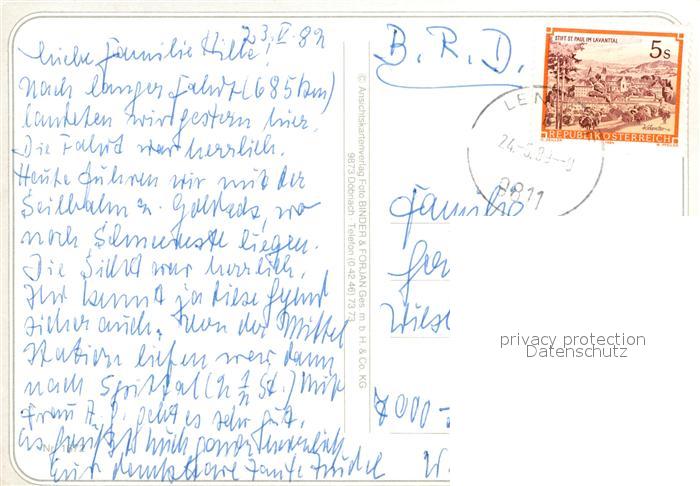 23.V.89
Liebe Familie Hille!
Nach langer Fahrt (685 km)
landeten wir gestern hier.
Die Fahrt war herrlich.
Heute fuhren wir mit der
Seilbahn z. Goldeck, wo
noch Schneereste liegen.
Die Sicht war herrlich.
Ihr kennt ja diese Gegend
sicher auch. Von der Mittel
Station liefen wir dann
nach Spittal (2 ½ St.) Mit
Frau A. G. geht es sehr gut.
Es grüßt Euch ganz herzlich
Eure dankbare Tante Trudel
Nr.
© Ansichtskartenverlag Foto BINDER & FORJAN Ges. m. b. H. & Co. KG
9873 Döbriach · Telefon (0 42 46) 73 73
B. R. D.
STIFT ST. PAUL IM LAVANTTAL
5 S
REPUBLIK ÖSTERREICH
LEN
24.-5.89-
9811
Familie
Wies
7000-
W.
privacy protection
Datenschutz